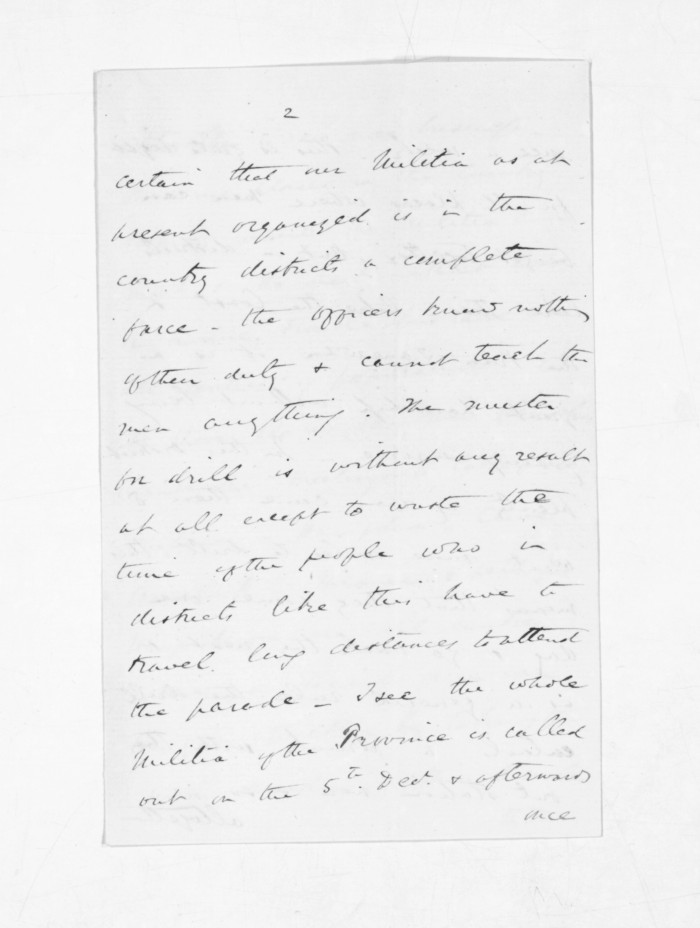 2
certain that our Militia as at
present organized is in the
country districts a complete
farce - the officers know nothing
of their duty & cannot teach the
men anything. The muster
for drill is without any result
at all except to waste the
time of the people who in
districts like this have to
travel long distances to attend
the parade - I see the whole
Militia of the Province is called
out on the 5th. Decr. & afterwards
once